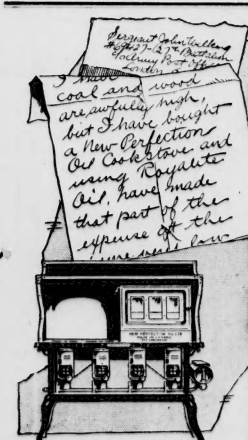 Sergeant John Wilkens
127th Battalion
Military Post Office
London
coal and wood
are awfully high,
but I have bought
a New Perfection
Oil Cookstove and
using Royalite
Oil, have made
that part of the
expense at the
NEW PERFECTION